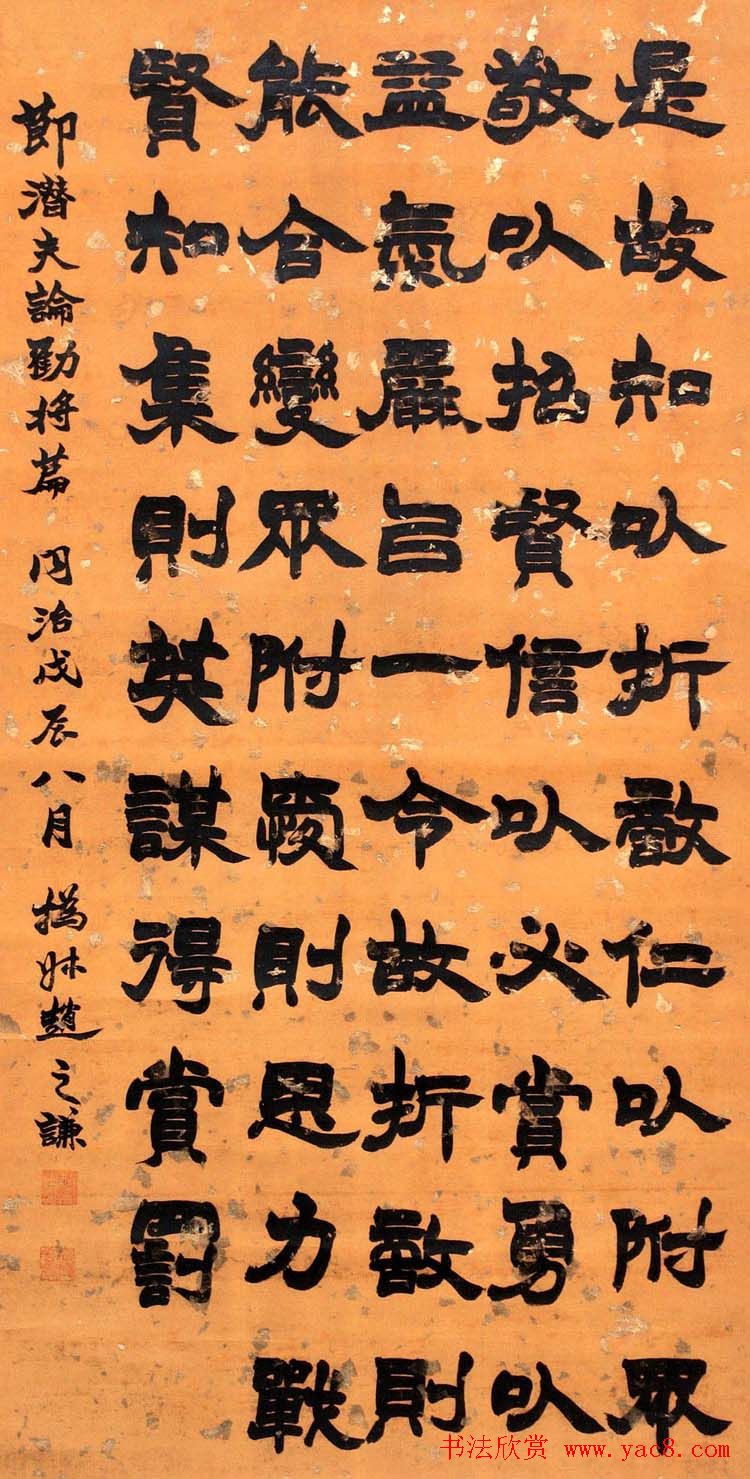 是故知㠯折敵仁㠯附眾
敬㠯招賢信㠯必賞勇㠯
益氣嚴㠯一令故折敵則
能合變眾附愛則思力戰
賢知集則英謀得賞罰
節潛夫論勸將篇 同治戊辰八月 撝叔趙之謙
书法欣赏 www.yac8.com